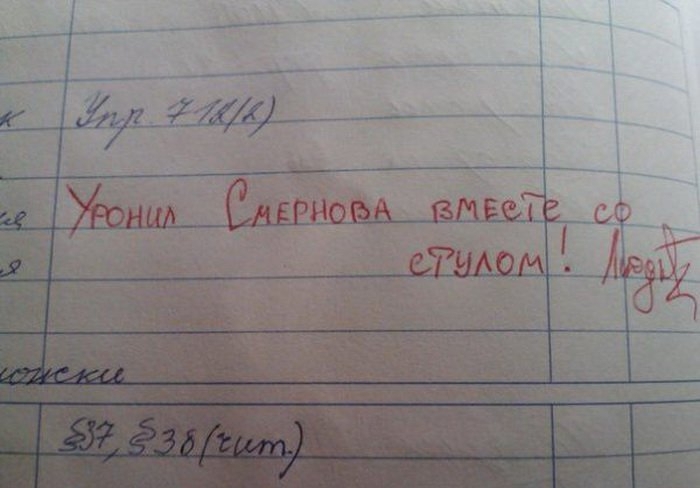 к Упр. 712(2)
Уронил Смернова вместе со
я стулом!
ложски
§37, §38 (чит.)